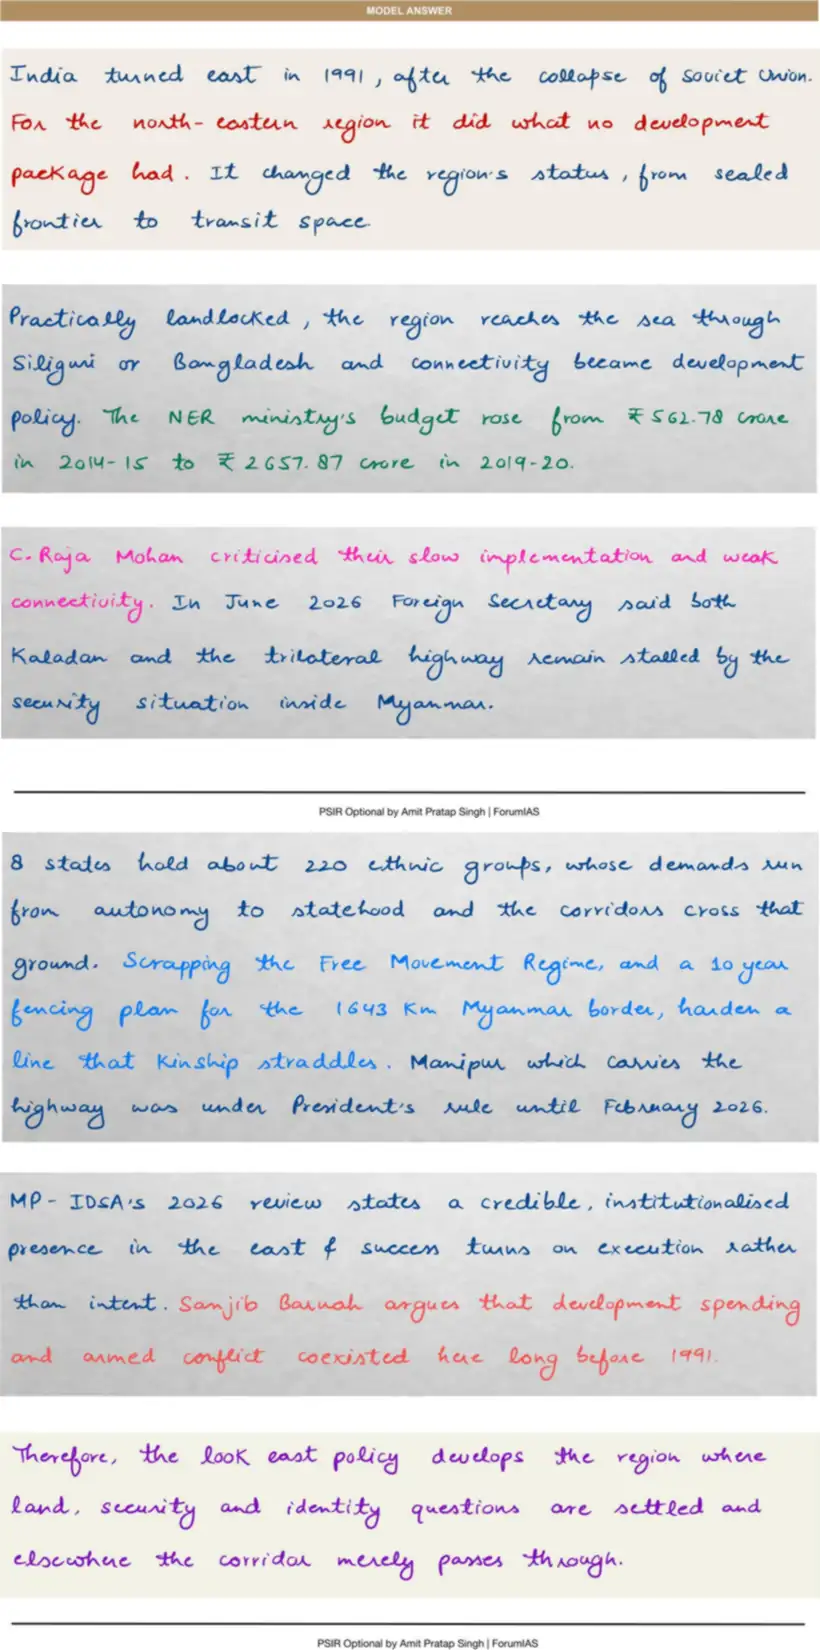 MODEL ANSWER
India turned east in 1991, after the collapse of Soviet Union.
For the north-eastern region it did what no development
package had. It changed the region's status, from sealed
frontier to transit space.
Practically landlocked, the region reaches the sea through
Siliguri or Bangladesh and connectivity became development
policy. The NER ministry's budget rose from ₹562.78 crore
in 2014-15 to ₹2657.87 crore in 2019-20.
C. Raja Mohan criticised their slow implementation and weak
connectivity. In June 2026 Foreign Secretary said both
Kaladan and the trilateral highway remain stalled by the
security situation inside Myanmar.
PSIR Optional by Amit Pratap Singh | ForumIAS
8 states hold about 220 ethnic groups, whose demands run
from autonomy to statehood and the corridors cross that
ground. Scrapping the Free Movement Regime, and a 10 year
fencing plan for the 1643 Km Myanmar border, harden a
line that Kinship straddles. Manipur which carries the
highway was under President's rule until February 2026.
MP-IDSA's 2026 review states a credible, institutionalised
presence in the east & success turns on execution rather
than intent. Sanjib Baruah argues that development spending
and armed conflict coexisted here long before 1991.
Therefore, the look east policy develops the region where
land, security and identity questions are settled and
elsewhere the corridor merely passes through.
PSIR Optional by Amit Pratap Singh | ForumIAS